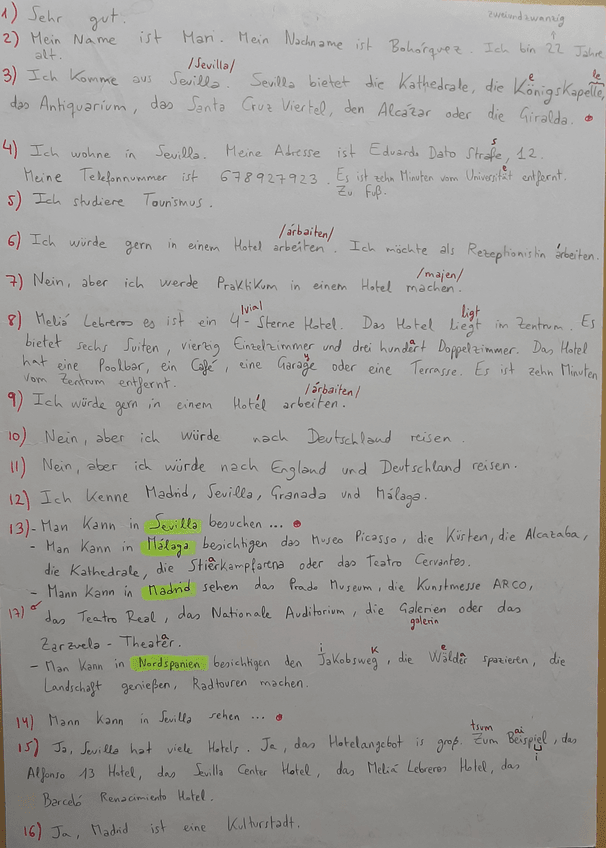 zweiundzwanzig
1) Sehr gut.
2) Mein Name ist Mari. Mein Nachname ist Bohórquez. Ich bin 22 Jahre
alt.
/Sevilla/
3) Ich Komme aus Sevilla. Sevilla bietet die Kathedrale, die Königskapelle,
e le
das Antiquarium, das Santa Cruz Viertel, den Alcázar oder die Giralda.
4) Ich wohne in Sevilla. Meine Adresse ist Eduardo Dato Straße, 12.
s
Meine Telefonnummer ist 678927923. Es ist zehn Minuten vom Universität entfernt.
e
Zu Fuß.
5) Ich studiere Tourismus.
/árbaiten/
6) Ich würde gern in einem Hotel arbeiten. Ich möchte als Rezeptionistin arbeiten.
/majen/
7) Nein, aber ich werde Praktikum in einem Hotel machen.
/via/ ligt
8) Meliá Lebreros es ist ein 4-Sterne Hotel. Das Hotel liegt im Zentrum. Es
bietet sechs Suiten, vierzig Einzelzimmer und drei hundert Doppelzimmer. Das Hotel
hat eine Poolbar, ein Café, eine Garage oder eine Terrasse. Es ist zehn Minuten
vom Zentrum entfernt.
/árbaiten/
9) Ich würde gern in einem Hotel arbeiten.
10) Nein, aber ich würde nach Deutschland reisen.
11) Nein, aber ich würde nach England und Deutschland reisen.
12) Ich Kenne Madrid, Sevilla, Granada und Málaga.
13) - Man Kann in Sevilla besuchen ...
- Man Kann in Málaga besichtigen das Museo Picasso, die Küsten, die Alcazaba,
die Kathedrale, die Stierkampfarena oder das Teatro Cervantes.
- Mann Kann in Madrid sehen das Prado Museum, die Kunstmesse ARCO,
17) das Teatro Real, das Nationale Auditorium, die Galerien oder das
galerin
Zarzuela - Theater.
- Man Kann in Nordspanien besichtigen den Jakobsweg, die Wälder spazieren, die
i K e
Landschaft genießen, Radtouren machen.
14) Mann Kann in Sevilla sehen ...
tsum ai
15) Ja, Sevilla hat viele Hotels. Ja, das Hotelangebot is groß. Zum Beispiel, das
i
Alfonso 13 Hotel, das Sevilla Center Hotel, das Meliá Lebreros Hotel, das
Barceló Renacimiento Hotel.
16) Ja, Madrid ist eine Kulturstadt.